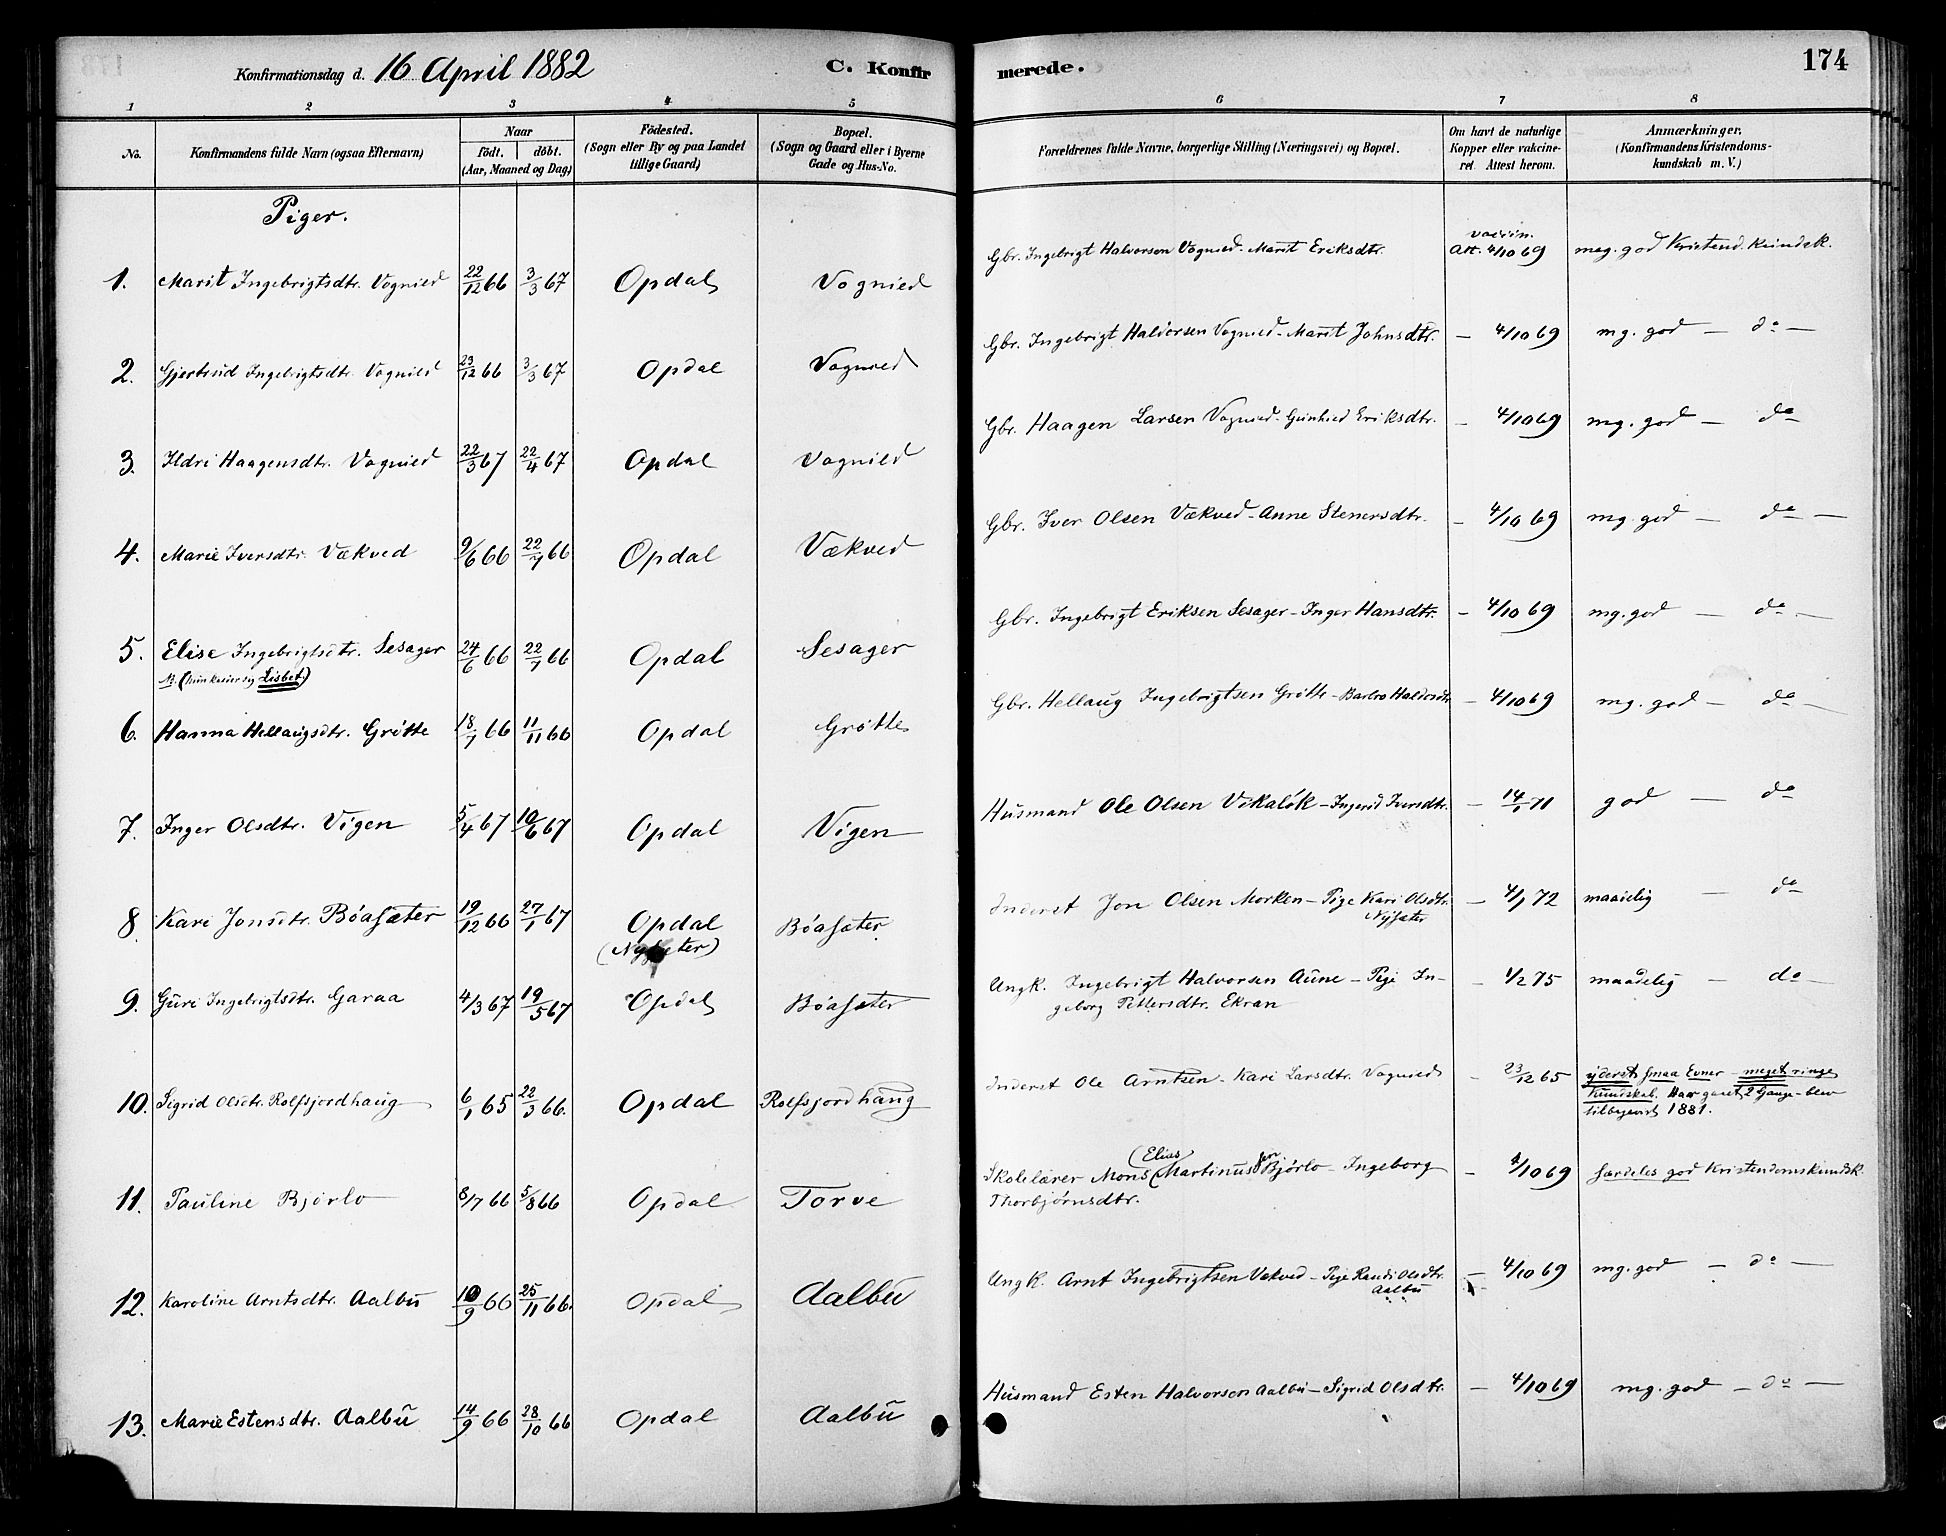 Konfirmationsdag d. 16 April 1882
C. Konfirmerede.
174
1 2 3 4 5 6 7 8
No.
Konfirmandens fulde Navn (ogsaa Efternavn)
Naar
födt. döbt.
(Aar, Maaned og Dag)
Födested.
(Sogn eller By og paa Landet
tillige Gaard)
Bopæl.
(Sogn og Gaard eller i Byerne
Gade og Hus-No.
Forældrenes fulde Navne, borgerlige Stilling (Næringsvei) og Bopæl.
Om havt de naturlige
Kopper eller vakcine-
ret. Attest herom.
Anmærkninger,
(Konfirmandens Kristendoms-
kundskab m. V.)
Piger.
1. Marit Ingebrigtsdtr. Vognild 22/12 66 3/3 67 Opdal Vognild Gbr. Ingebrigt Halvorsen Vognild - Marit Eriksdtr. vaccin. Att. 4/10 69 meg. god Kristend. kundsk.
2. Gjertrud Ingebrigtsdtr. Vognild 23/12 66 3/3 67 Opdal Vognild Gbr. Ingebrigt Haldorsen Vognild - Marit Johnsdtr. — 4/10 69 mg. god — do —
3. Ildri Haagensdtr. Vognild 22/3 67 22/4 67 Opdal Vognild Gbr. Haagen Larsen Vognild - Gunhild Eriksdtr. — 4/10 69 mg. god — do
4. Marie Iversdtr. Vækved 9/6 66 22/7 66 Opdal Vækved Gbr. Iver Olsen Vækved - Anne Stenersdtr. — 4/10 69 mg. god — do —
5. Elise Ingebrigtsdtr. Sesager 24/6 66 22/7 66 Opdal Sesager Gbr. Ingebrigt Eriksen Sesager - Inger Hansdtr. — 4/10 69 mg. god — do —
NB. (hun kalder sig Lisbet)
6. Hanna Hellaugsdtr. Grøtte 18/7 66 11/11 66 Opdal Grøtte Gbr. Hellaug Ingebrigtsen Grøtte - Barbro Haldosdtr — 4/10 69 mg. god — do —
7. Inger Olsdtr. Vigen 5/4 67 10/6 67 Opdal Vigen Husmand Ole Olsen Vikaløk - Ingerid Iversdtr. — 14/1 71 god — do
8. Kari Jonsdtr. Böasæter 19/12 66 27/1 67 Opdal Böasæter Inderst Jon Olsen Morken - Pige Kari Olsdtr. — 4/1 72 maadelig — do
(Nysæter) Nysæter
9. Guri Ingebrigtsdtr. Garaa 4/3 67 19/5 67 Opdal Böasæter Ungk. Ingebrigt Halvorsen Aune - Pige In- — 1/2 75 maadelig — do —
geborg Pettersdtr. Ekran
10. Sigrid Olsdtr. Rolfsjordhaug 6/1 65 22/3 66 Opdal Rolfsjordhaug Inderst Ole Arntsen - Kari Larsdtr. Vognild — 23/12 65 yderst smaa Evner - meget ringe
Kundskab. Har gaaet 2 Gange - blev
tilbagevist 1881.
11. Pauline Bjørlo 8/7 66 5/8 66 Opdal Torve Skolelærer Mons (Elias) Martinussen Bjørlo - Ingeborg — 4/10 69 særdeles god Kristendomskundsk.
Thorbjørnsdtr.
12. Karoline Arntsdtr. Aalbu 10/9 66 25/11 66 Opdal Aalbu Ungk. Arnt Ingebrigtsen Vækved - Pige Randi Olsdtr. — 4/10 69 mg. god — do —
Aalbu
13. Marie Estensdtr. Aalbu 14/9 66 28/10 66 Opdal Aalbu Husmand Esten Halvorsen Aalbu - Sigrid Olsdtr. — 4/10 69 mg. god — do —